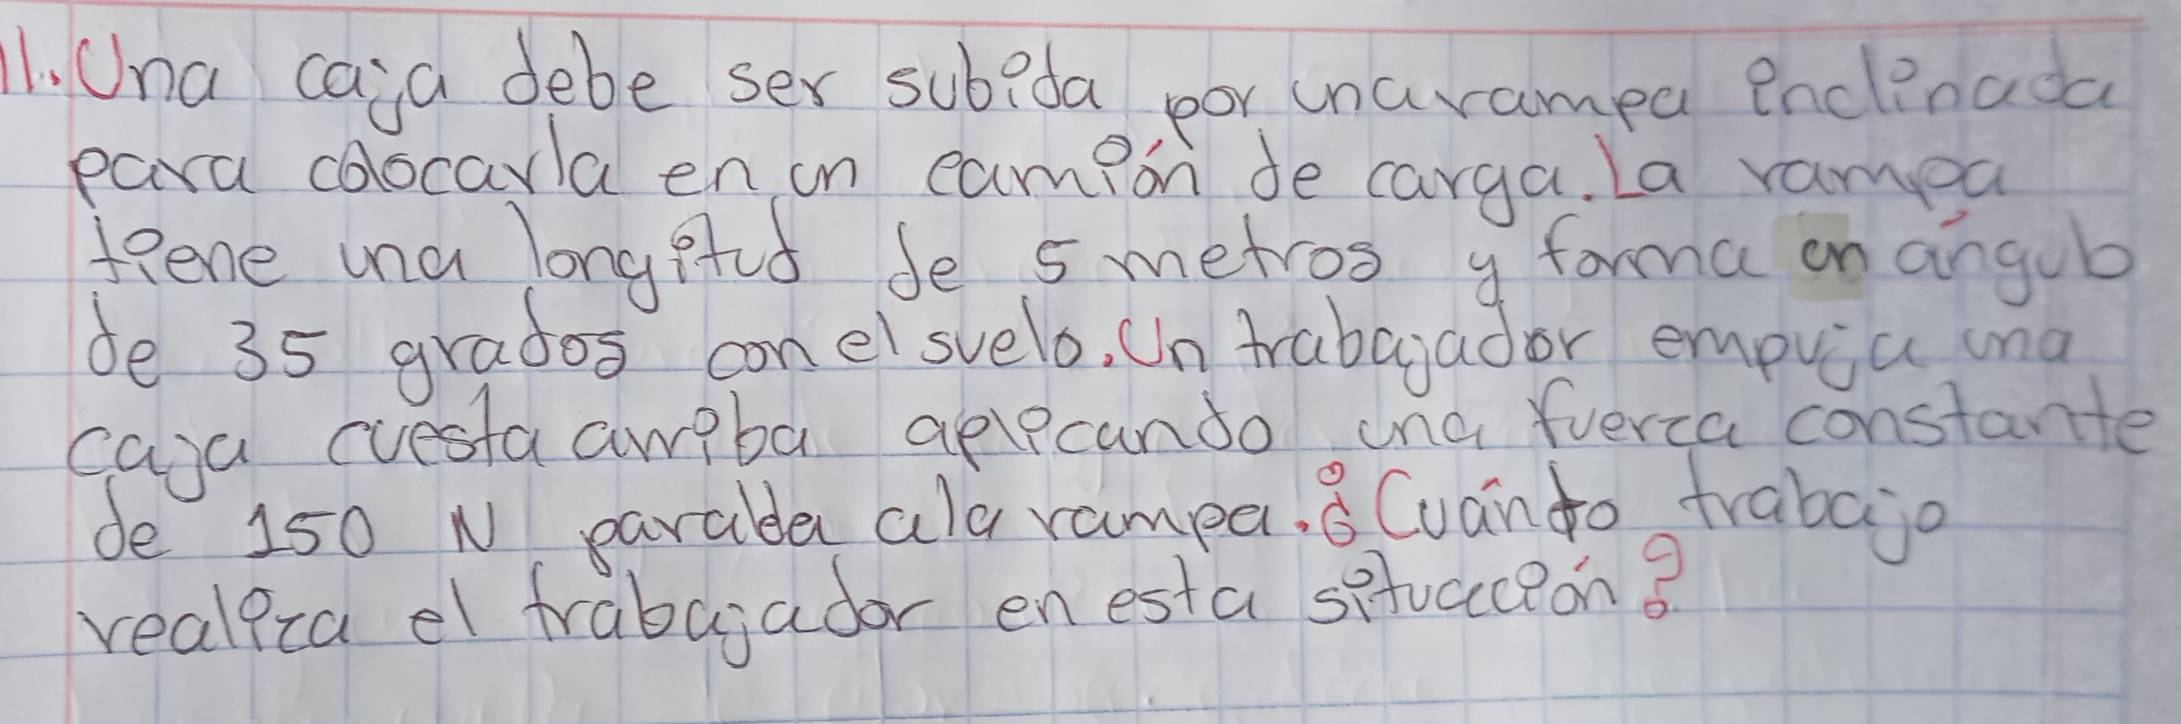 11. Una caja debe ser subida por una rampa inclinada
para colocarla en un camión de carga. La rampa
tiene una longitud de 5 metros y forma un ángulo
de 35 grados con el suelo. Un trabajador empuja una
caja cuesta arriba aplicando una fuerza constante
de 150 N paralela a la rampa. ¿Cuánto trabajo
realiza el trabajador en esta situación?